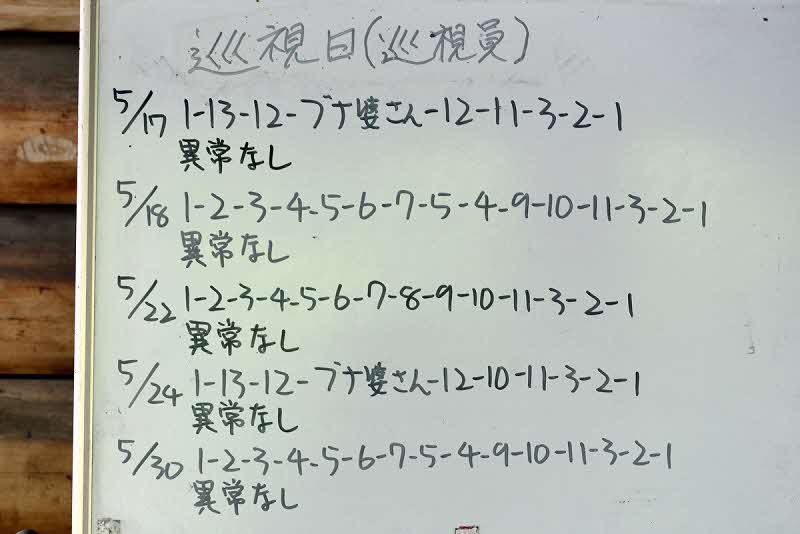 巡視日(巡視員)
5/17 1-13-12-ブナ婆さん-12-11-3-2-1
異常なし
5/18 1-2-3-4-5-6-7-5-4-9-10-11-3-2-1
異常なし
5/22 1-2-3-4-5-6-7-8-9-10-11-3-2-1
異常なし
5/24 1-13-12-ブナ婆さん-12-10-11-3-2-1
異常なし
5/30 1-2-3-4-5-6-7-5-4-9-10-11-3-2-1
異常なし